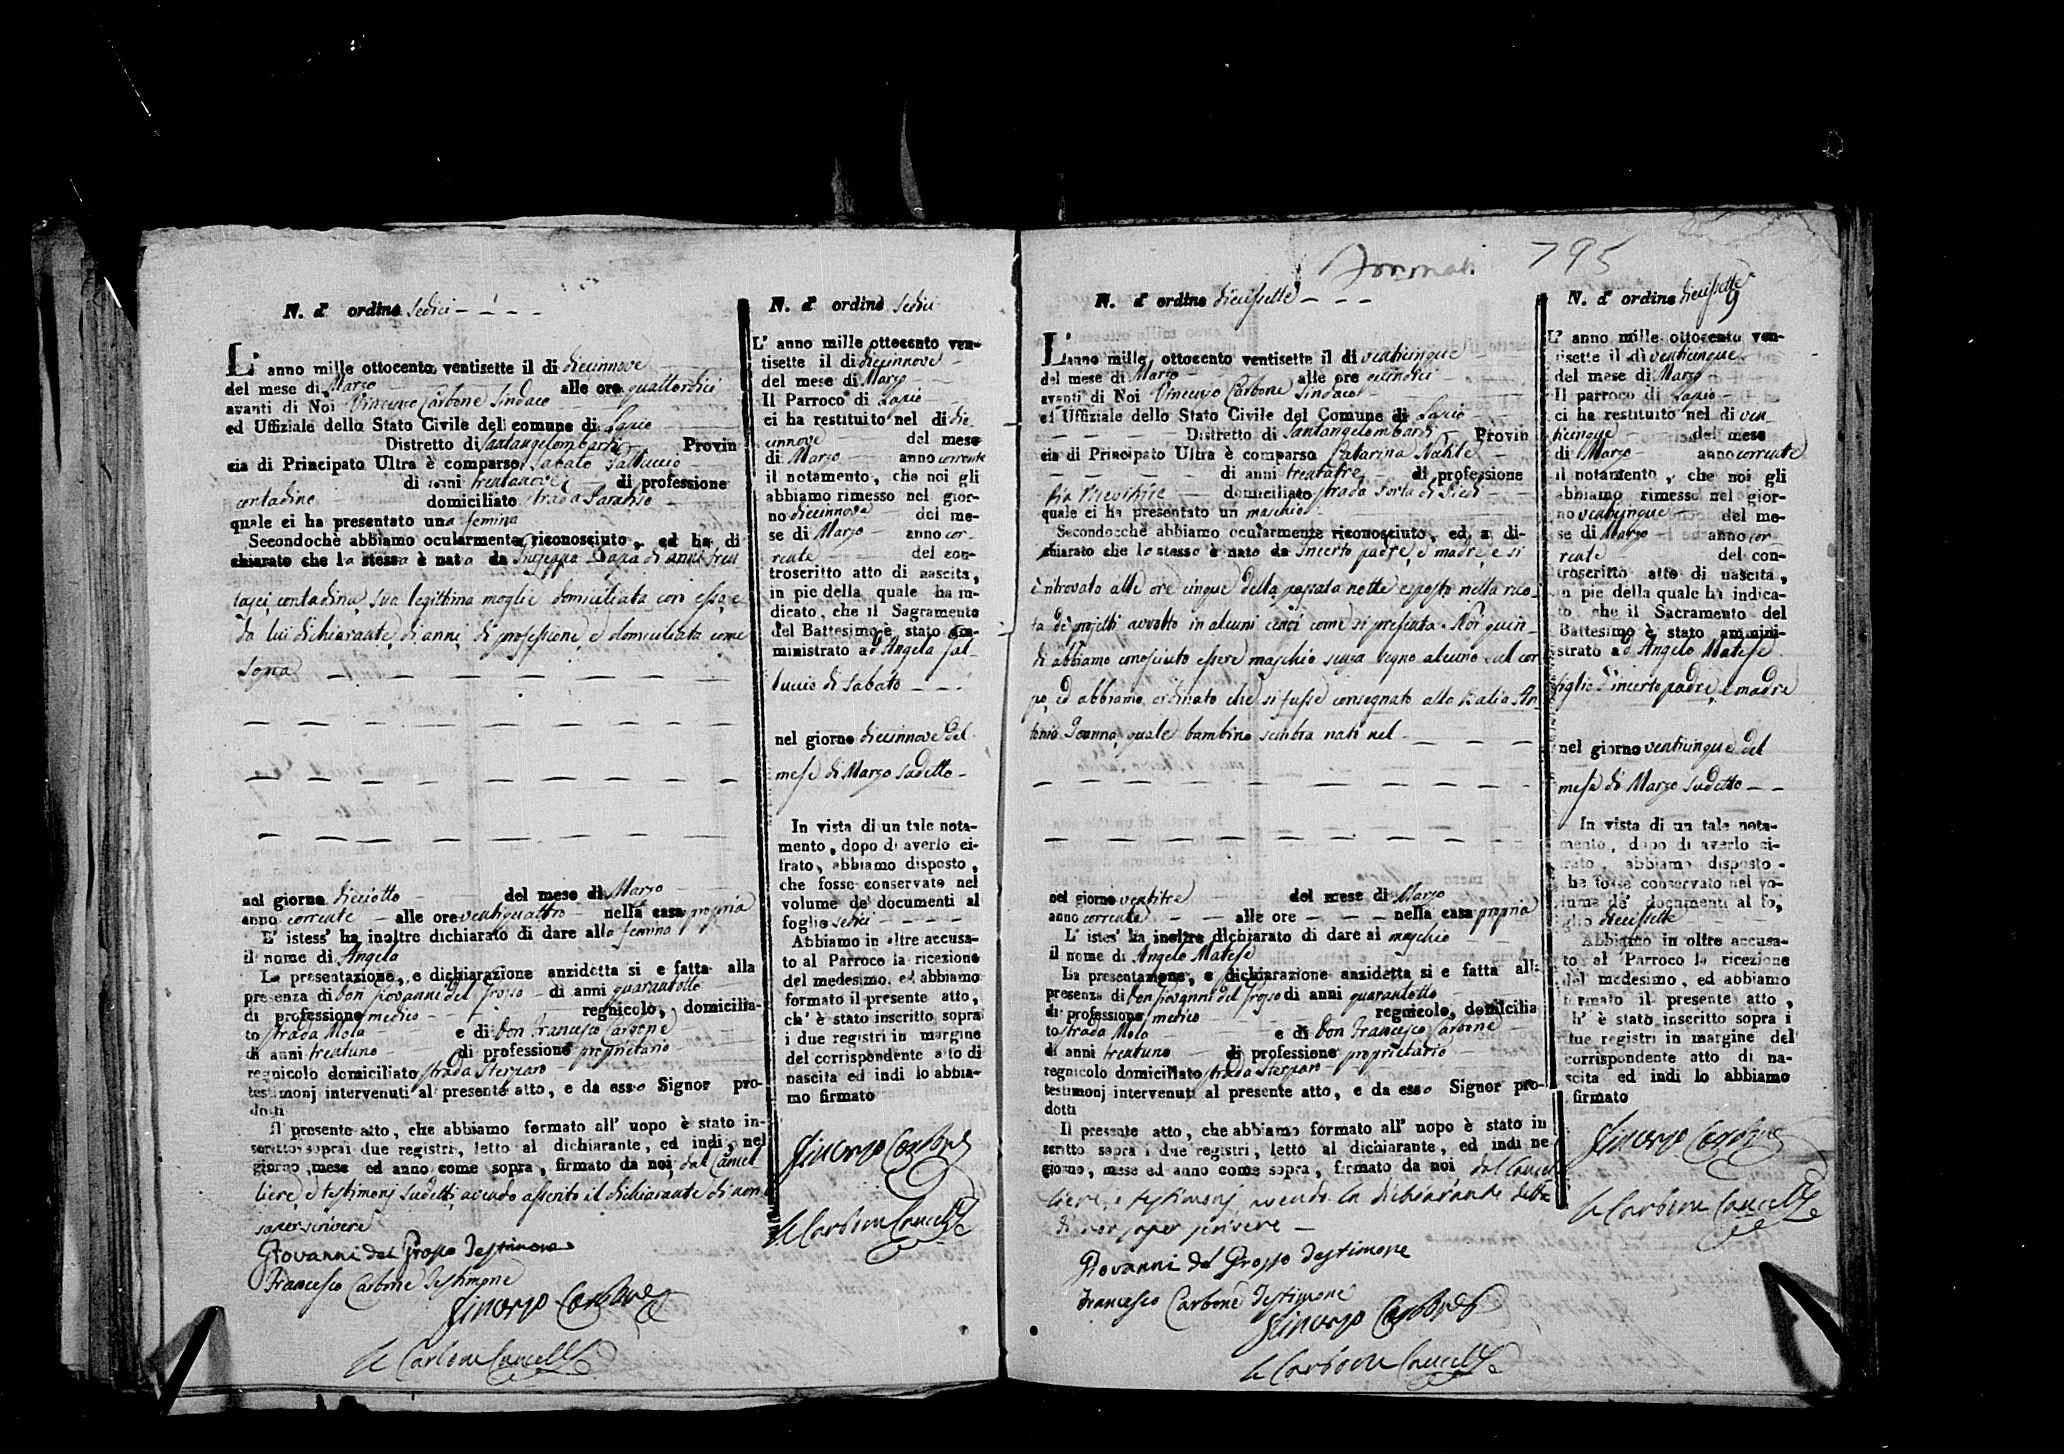 N. d' ordine sedici
L' anno mille ottocento ventisette il di diecinnove
del mese di Marzo alle ore quattordici
avanti di Noi Vincenzo Carbone Sindaco
ed Uffiziale dello Stato Civile del comune di Lapio
Distretto di Santangelombardi Provin
cia di Principato Ultra è comparso Sabato
di anni trentanove di professione
contadino domiciliato strada Paradiso
quale ei ha presentato una femina
Secondochè abbiamo ocularmente riconosciuto, ed ha di
chiarato che la stessa è nata da Giuseppa di anni tren
tasei contadina, sua legittima moglie domiciliata con esso, e
da lui dichiarante, di anni, di professione, e domiciliata come
sopra
nel giorno dieciotto del mese di Marzo
anno corrente alle ore ventiquattro nella casa propria
E' istess' ha inoltre dichiarato di dare alla femina
il nome di Angela
La presentazione, e dichiarazione anzidetta si e fatta alla
presenza di Don Giovanni del Grosso di anni quarantotto
di professione medico regnicolo, domicilia-
to strada Mola e di Don Francesco Carbone
di anni trentuno di professione proprietario
regnicolo domiciliato strada Sterparo
testimonj intervenuti al presente atto, e da esso Signor pro-
dotti
Il presente atto, che abbiamo formato all' uopo è stato in-
scritto soprai due registri, letto al dichiarante, ed indi, nel
giorno, mese ed anno come sopra, firmato da noi, dal Cancel-
liere, e testimonj sudetti, avendo asserito il dichiarante di non
saper scrivere
Giovanni del Grosso Testimone
Francesco Carbone Testimone
Vincenzo Carbone
Carbone Cancelle
N. d' ordine sedici
L' anno mille ottocento ven-
tisette il di diecinnove
del mese di Marzo
Il Parroco di Lapio
ci ha restituito nel di die-
cinnove del mese
di Marzo anno corrente
il notamento, che noi gli
abbiamo rimesso nel gior-
no diecinnove del me-
se di Marzo anno cor-
rente del con-
troscritto atto di nascita,
in pie della quale ha in-
dicato, che il Sagramento
del Battesimo è stato am-
ministrato ad Angela
di Sabato
nel giorno diecinnove del
mese di Marzo sudetto
In vista di un tale nota-
mento, dopo di averlo ci-
frato, abbiamo disposto,
che fosse conservato nel
volume de' documenti al
foglio sedici
Abbiamo in oltre accusa-
to al Parroco la ricezione
del medesimo, ed abbiamo
formato il presente atto,
ch' è stato inscritto sopra
i due registri in margine
del corrispondente atto di
nascita ed indi lo abbia-
mo firmato
Vincenzo Carbone
Carbone Cancelle
795
N. d' ordine diecissette
L' anno mille, ottocento ventisette il di venticinque
del mese di Marzo alle ore quindici
avanti di Noi Vincenzo Carbone Sindaco
ed Uffiziale dello Stato Civile del Comune di Lapio
Distretto di Santangelombardi Provin
cia di Principato Ultra è comparsa Catarina
di anni trentatre di professione
domiciliata strada Porta di Piedi
quale ei ha presentato un maschio
Secondocchè abbiamo ocularmente riconosciuto, ed, a di-
chiarato che lo stesso è nato da incerto padre, e madre, e si
è ritrovato alle ore cinque della passata notte esposto nella ruo-
ta de' projetti avvolto in alcuni cenci come si presenta. Noi quin-
di abbiamo conosciuto essere maschio senza segno alcuno sul cor
po, ed abbiamo ordinato che si fusse consegnato alla Balia An-
tonia Joanna, quale bambino sembra nato nel
nel giorno ventitre del mese di Marzo
anno corrente alle ore nella casa propria
L' istes' ha inoltre dichiarato di dare al maschio
il nome di Angelo Matese
La presentazione, e dichiarazione anzidetta si e fatta alla
presenza di Don Giovanni del Grosso di anni quarantotto
di professione medico regnicolo, domicilia
to strada Mola e di Don Francesco Carbone
di anni trentuno di professione proprietario
regnicolo domiciliato strada Sterparo
testimonj intervenuti al presente atto, e da esso Signor pro-
dotti
Il presente atto, che abbiamo formato all' uopo è stato in
scritto sopra i due registri, letto al dichiarante, ed indi ne
giorno, mese ed anno come sopra, firmato da noi dal Cancel
liere, e testimonj avendo la dichiarante detto
di non saper scrivere
Giovanni del Grosso Testimone
Francesco Carbone Testimone
Vincenzo Carbone
Carbone Cancelle
N. d' ordine diecissette
9
L' anno mille ottocento ven-
tisette il di venticinque
del mese di Marzo
Il parroco di Lapio
ci ha restituito nel di ven-
ticinque del mese
di Marzo anno corrente
il notamento, che noi gli
abbiamo rimesso nel gior-
no venticinque del me-
se di Marzo anno cor-
rente del con-
troscritto atto di nascita,
in pie della quale ha indica-
to, che il Sacramento del
Battesimo è stato ammini-
strato ad Angelo Matese
figlio d'incerto padre, e madre
nel giorno venticinque del
mese di Marzo sudetto
In vista di un tale nota-
mento, dopo di averlo ci-
frato, abbiamo disposto
che fosse conservato nel vo-
lume de' documenti al fo-
glio diecissette
Abbiamo in oltre accusa-
to al Parroco la ricezione
del medesimo, ed abbiamo
formato il presente atto,
ch' è stato inscritto sopra i
due registri in margine del
corrispondente atto di na-
scita ed indi lo abbiamo
firmato
Vincenzo Carbone
Carbone Cancelle